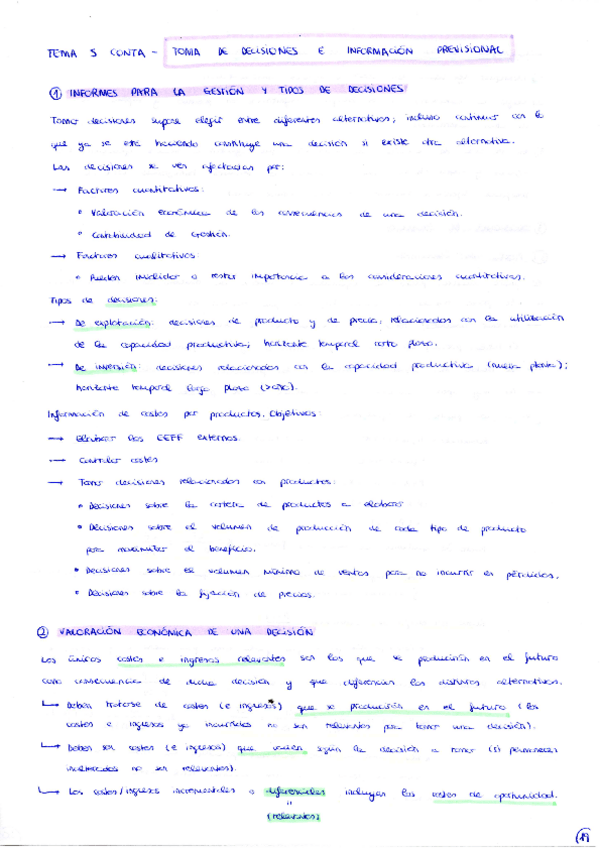 TEMA 5 CONTA - TOMA DE DECISIONES E INFORMACIÓN PREVISIONAL
① INFORMES PARA LA GESTIÓN Y TIPOS DE DECISIONES
Tomar decisiones supone elegir entre diferentes alternativas; incluso continuar con lo
que ya se está haciendo constituye una decisión si existe otra alternativa.
Las decisiones se ven afectadas por:
→ Factores cuantitativos:
• Valoración económica de las consecuencias de una decisión.
• Contabilidad de Gestión.
→ Factores cualitativos
• Pueden invalidar o restar importancia a las consideraciones cuantitativas.
Tipos de decisiones:
→ De explotación: decisiones de producto y de precio, relacionadas con la utilización
de la capacidad productiva; horizonte temporal corto plazo.
→ De inversión: decisiones relacionadas con la capacidad productiva (nueva planta);
horizonte temporal largo plazo (>año).
Información de costes por productos. Objetivos:
→ Elaborar los EEFF externos.
→ Controlar costes
→ Tomar decisiones relacionadas con productos:
• Decisiones sobre la cartera de productos a elaborar
• Decisiones sobre el volumen de producción de cada tipo de producto
para maximizar el beneficio.
• Decisiones sobre el volumen mínimo de ventas para no incurrir en pérdidas.
• Decisiones sobre la fijación de precios.
② VALORACIÓN ECONÓMICA DE UNA DECISIÓN
Los únicos costes e ingresos relevantes son los que se producirán en el futuro
como consecuencia de dicha decisión y que diferencian las distintas alternativas.
↳ Deben tratarse de costes (e ingresos) que se producirán en el futuro (los
costes e ingresos ya incurridos no son relevantes para tomar una decisión).
↳ Deben ser costes (e ingresos) que varíen según la decisión a tomar (si permanecen
inalterados no son relevantes).
↳ Los costes/ingresos incrementales o diferenciales incluyen los costes de oportunidad.
=
(relevantes)
19